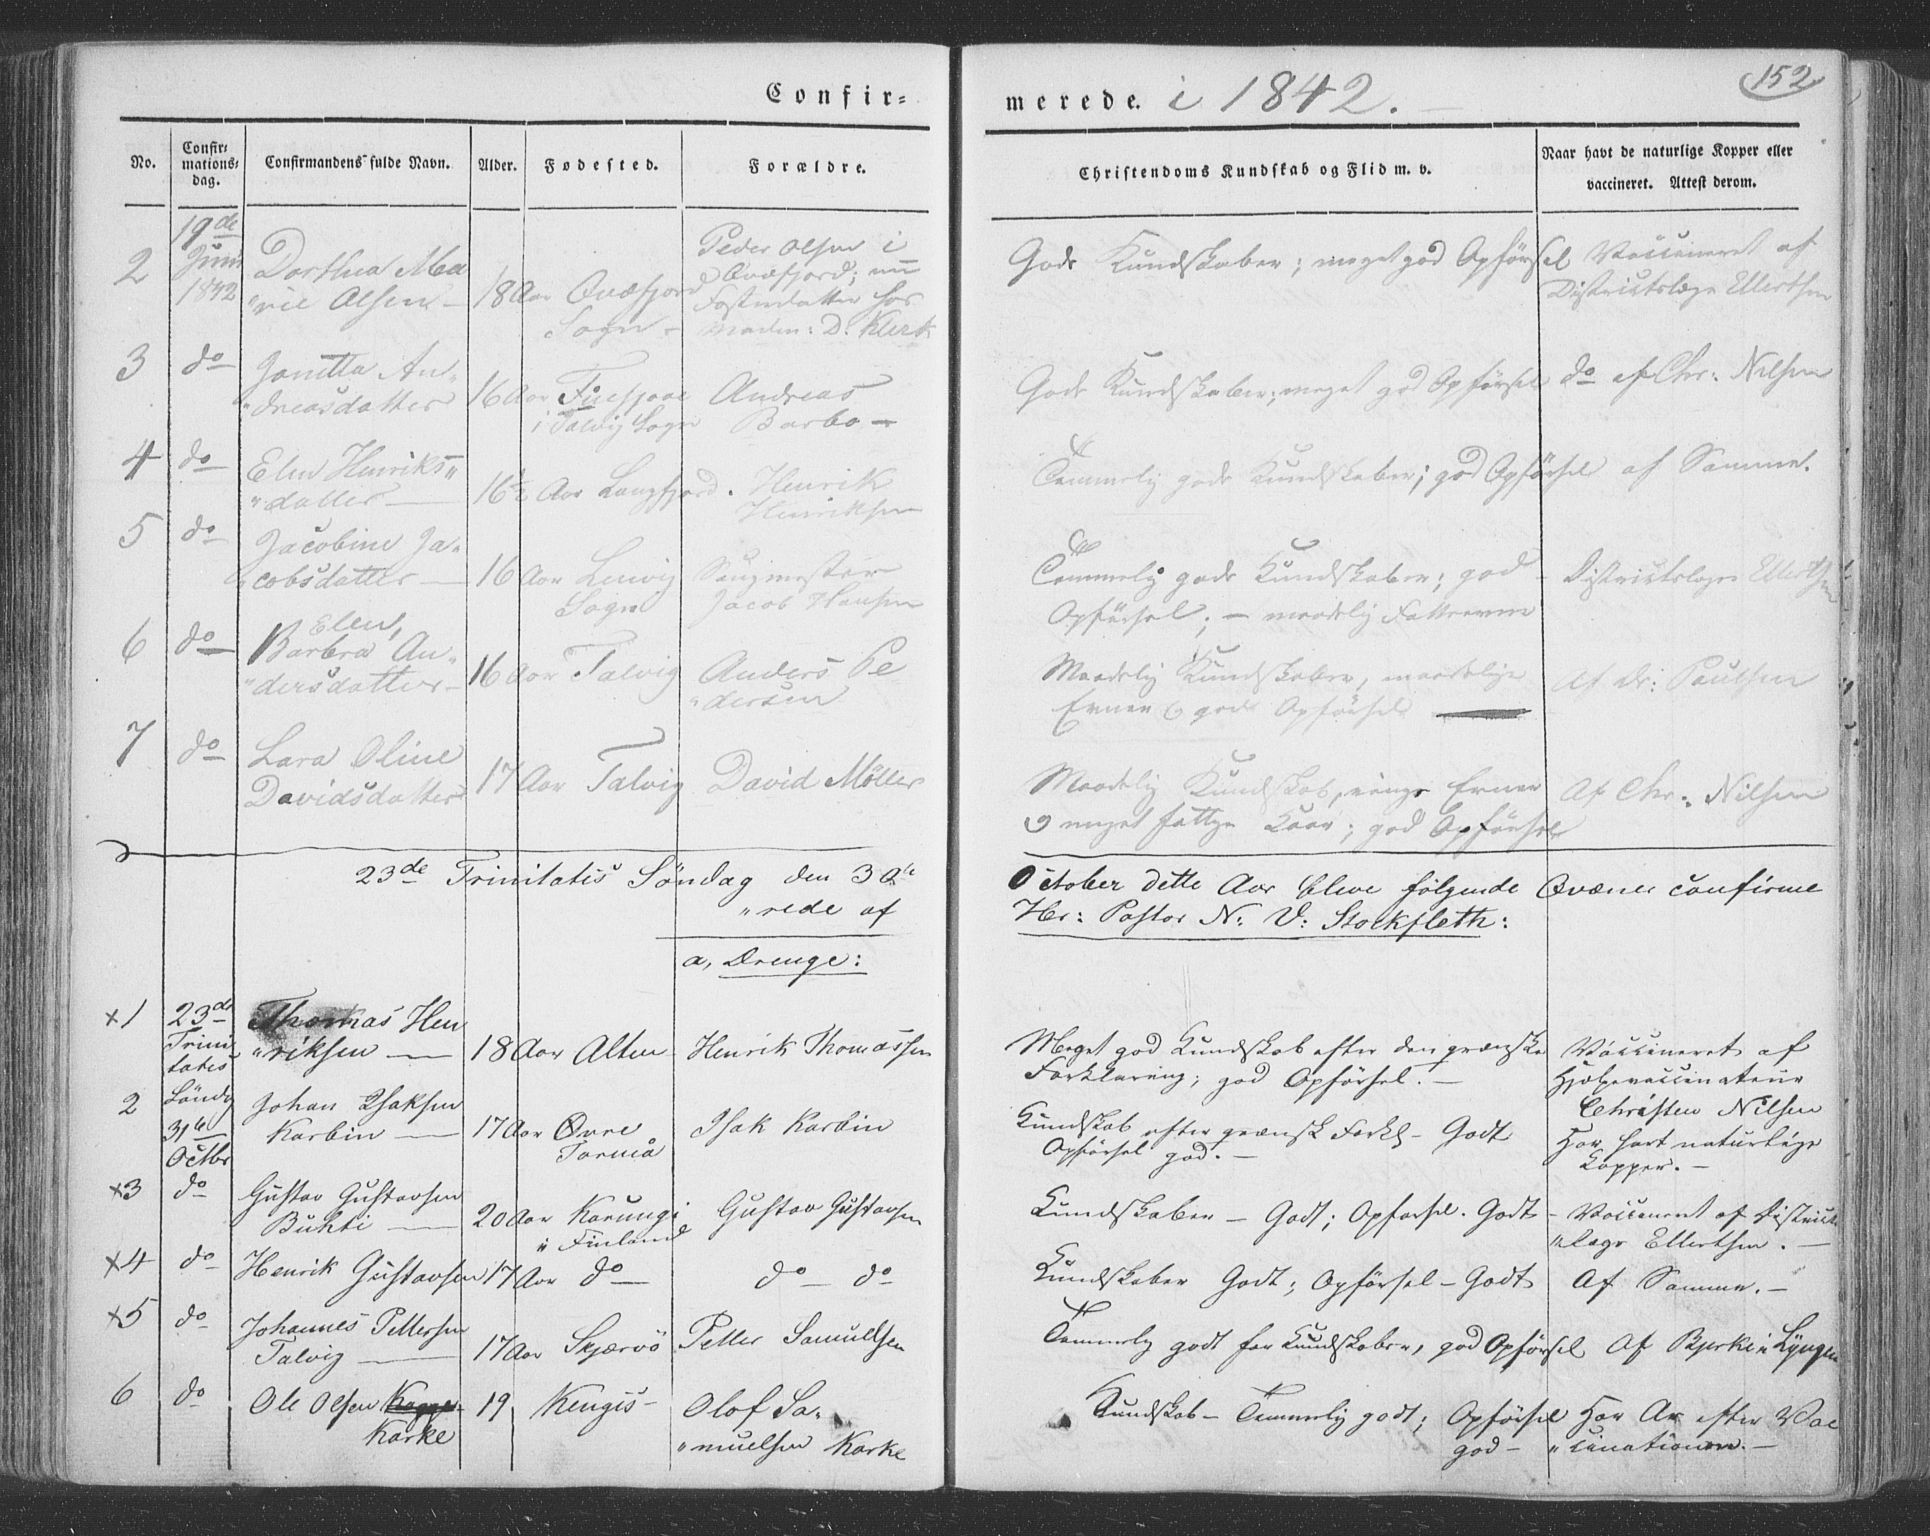 Confir=
merede. i 1842.
152
No.
Confir=
mations=
dag.
Confirmandens fulde Navn.
Alder.
Fødested.
Forældre.
Christendoms Kundskab og Flid m. v.
Naar havt de naturlige Kopper eller
vaccineret. Attest derom.
2
19de
Juni
1842
Dorthea Ma
"rie Olsen
18 Aar
Qvæfjord
Sogn
Peder Olsen i
Qvæfjord; nu
Fosterdatter hos
Madm: D. Klerk
Gode Kundskaber; meget god Opførsel
Vaccineret af
Districtslæge Ellertsen
3
do
Jonetta An"
"dreasdatter
16 Aar
i Talvig Sogn
Andreas
Barbo
Gode Kundskaber; meget god Opførsel
do af Chr: Nilsen
4
do
Elen Henriks"
"datter
16½ Aar
Langfjord.
Henrik
Henriksen
Temmelig gode Kundskaber; god Opførsel
af Samme.
5
do
Jacobine Ja"
"cobsdatter
16 Aar
Leivig
Sogn
Jacob Hansen
Temmelig gode Kundskaber; god
Opførsel; — maadelig Fatteevne
Districtslæge Ellertsen
6
do
Elen,
Barbra An"
"dersdatter
16 Aar
Talvig
Anders Pe
"dersen
Maadelig Kundskaber, maadelige
Evner og gode Opførsel
Af do: Paulsen
7
do
Lara Oline
Davidsdatter
17 Aar
Talvig
David Möller
Maadelig Kundskab, ringe Evner
og meget fattige Kaar; god Opførsel
Af Chr: Nilsen
23de Trinitatis Söndag den 30te October dette Aar bleve følgende Qvæner confirme
"rede af Hr: Pastor N: V: Stockfleth:
a, Drenge:
x1
23de
Trini
tatis
Söndg
31te
Octbr
Thomas Hen
"riksen
18 Aar
Alten
Henrik Thomassen
Meget god Kundskab efter den qvænske
Forklaring; god Opførsel.
Vaccineret af
Hjelpevaccinateur
Christen Nilsen
2
Johan Isaksen
Karbin
17 Aar
Øvre
Torneå
Isak Karbin
Kundskab efter qvænsk Forkl - Godt
Opførsel god.
Har havt naturlige
Kopper.
x3
do
Gustav Gustavsen
Buhti
20 Aar
Karungi
i Finland
Gustav Gustavsen
Kundskaber — Godt; Opførsel. Godt
Vaccineret af District
"læge Ellertsen.
x4
do
Henrik Gustavsen
17 Aar
do
do do
Kundskaber Godt; Opførsel — Godt
Af Samme.
x5
do
Johannes Pettersen
Talvig
17 Aar
Skjervö
Petter Samuelsen
Temmelig godt for Kundskaber, god Opførsel
Af Bjerk i Lyngen
6
do
Ole Olsen
Karke
19
Kengis
Olof Sa"
"muelsen Karke
Kundskab — Temmelig godt; Opførsel
god
Har Ar efter Vac
"cinationen.